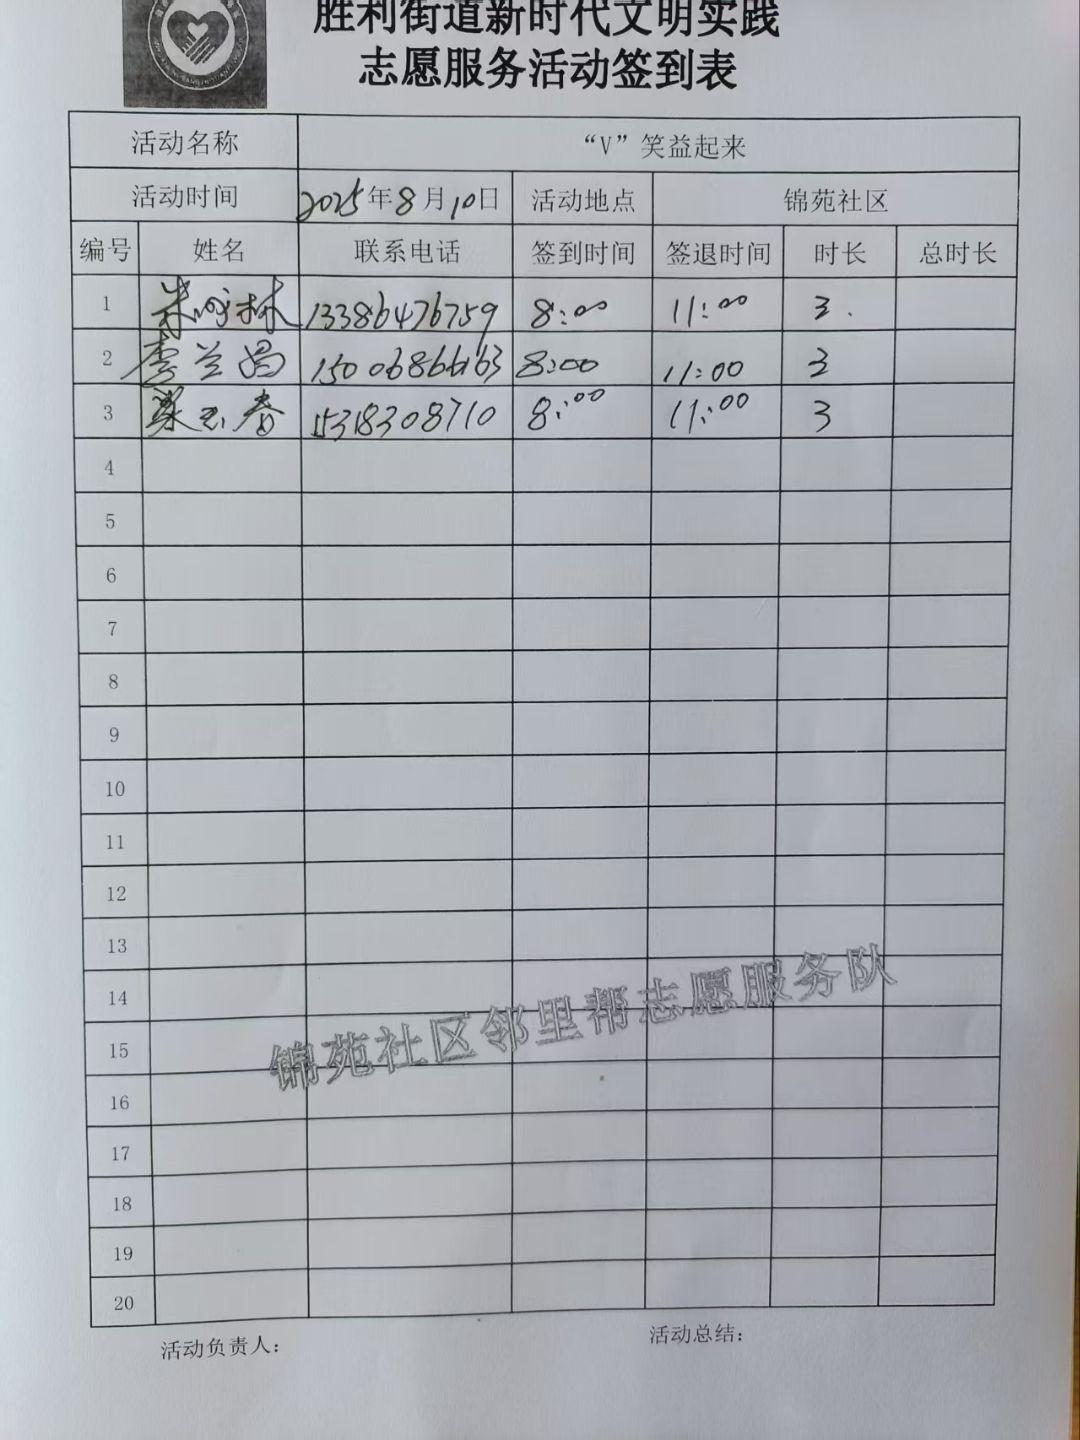 胜利街道新时代文明实践
志愿服务活动签到表
活动名称 “V”笑益起来
活动时间 2025年8月10日 活动地点 锦苑社区
编号 姓名 联系电话 签到时间 签退时间 时长 总时长
1 林 13386476759 8:00 11:00 3.
2 李兰昌 15006866163 8:00 11:00 3
3 梁玉春 15318308710 8:00 11:00 3
4
5
6
7
8
9
10
11
12
13
14
15
16
17
18
19
20
锦苑社区邻里帮志愿服务队
活动负责人: 活动总结: